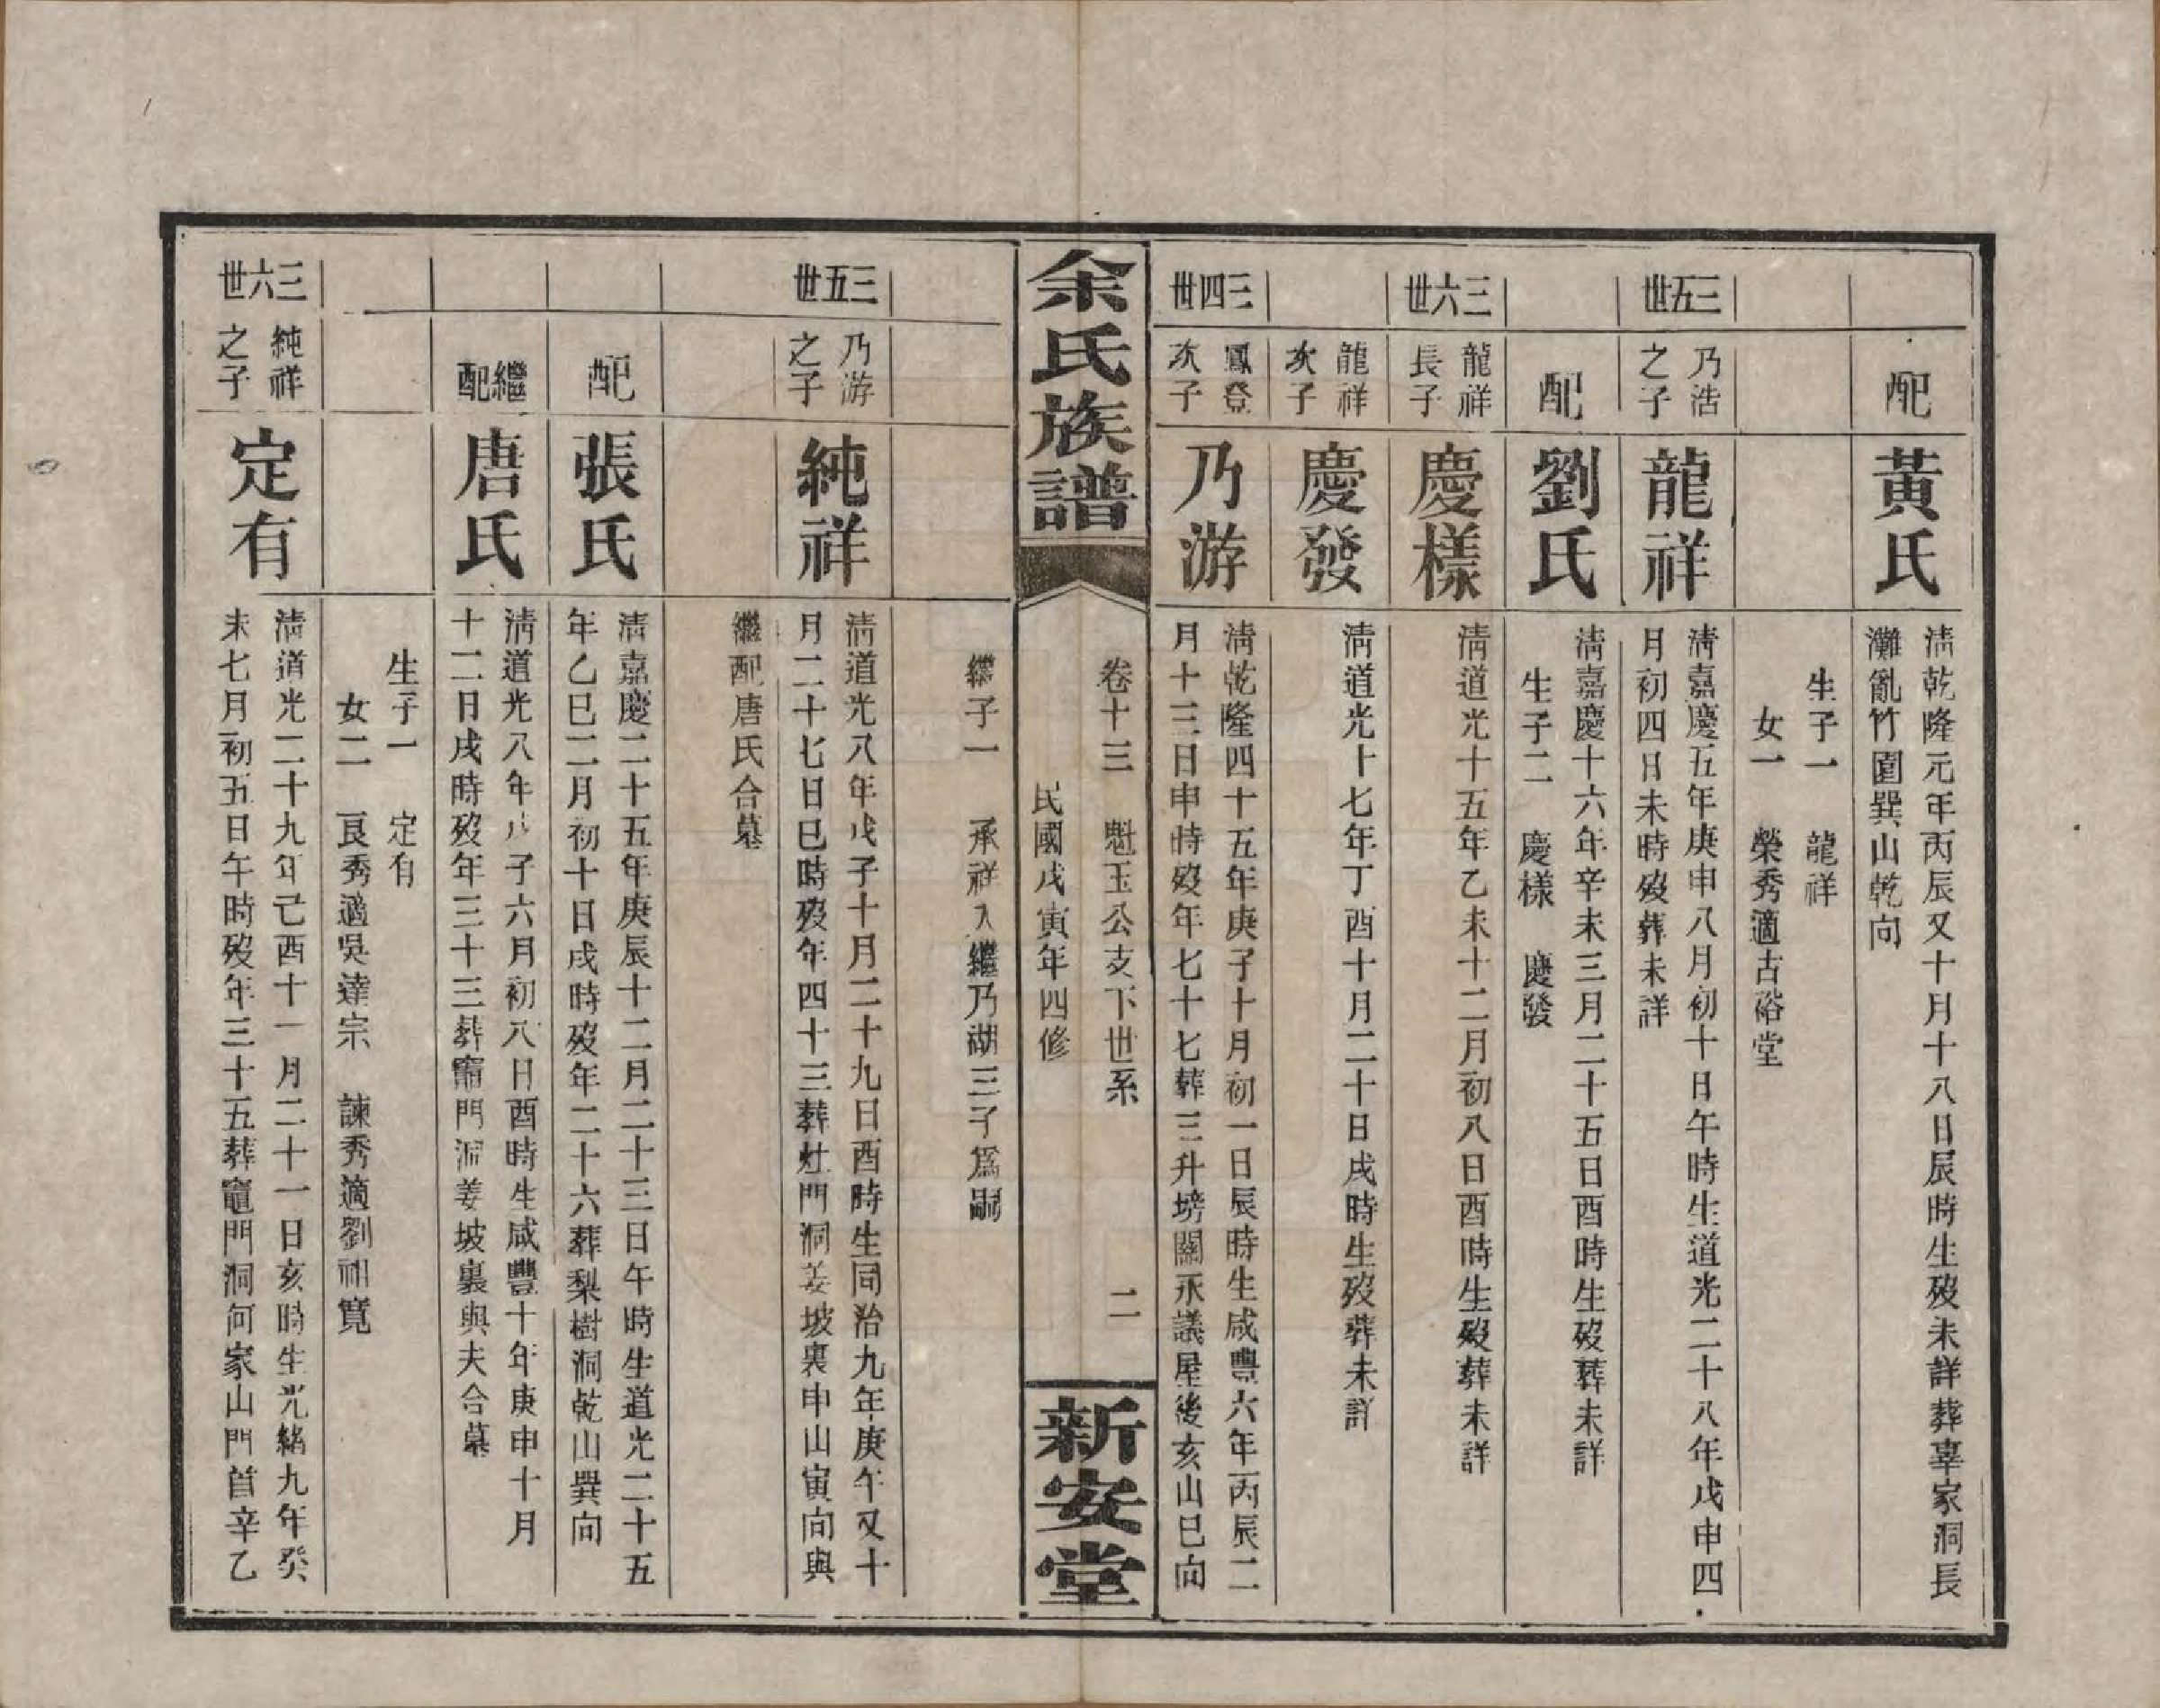 配
黃氏
淸乾隆元年丙辰又十月十八日辰時生歿未詳葬辜家洞長
灘亂竹園巽山乾向
生子一　龍祥
女一　榮秀適古裕堂
三五世
乃浩
之子
龍祥
淸嘉慶五年庚申八月初十日午時生道光二十八年戊申四
月初四日未時歿葬未詳
配
劉氏
淸嘉慶十六年辛未三月二十五日酉時生歿葬未詳
生子二　慶樣　慶發
三六世
龍祥
長子
慶樣
淸道光十五年乙未十二月初八日酉時生歿葬未詳
龍祥
次子
慶發
淸道光十七年丁酉十月二十日戌時生歿葬未詳
三四世
鳳登
次子
乃游
淸乾隆四十五年庚子十月初一日辰時生咸豐六年丙辰二
月十三日申時歿年七十七葬三升塝關永議屋後亥山巳向
余氏族譜
卷十三　魁玉公支下世系　二
民國戊寅年四修
新安堂
繼子一　承祥入繼乃湖三子爲嗣
三五世
乃游
之子
純祥
淸道光八年戊子十月二十九日酉時生同治九年庚午又十
月二十七日巳時歿年四十三葬灶門洞姜坡裏申山寅向與
繼配唐氏合墓
配
張氏
淸嘉慶二十五年庚辰十二月二十三日午時生道光二十五
年乙巳二月初十日戌時歿年二十六葬梨樹洞乾山巽向
繼配
唐氏
淸道光八年戊子六月初八日酉時生咸豐十年庚申十月
十二日戌時歿年三十三葬竈門洞姜坡裏與夫合墓
生子一　定有
女二　良秀適吳達宗　諫秀適劉祖寬
三六世
純祥
之子
定有
淸道光二十九年己酉十一月二十一日亥時生光緒九年癸
未七月初五日午時歿年三十五葬竈門洞何家山門首辛乙